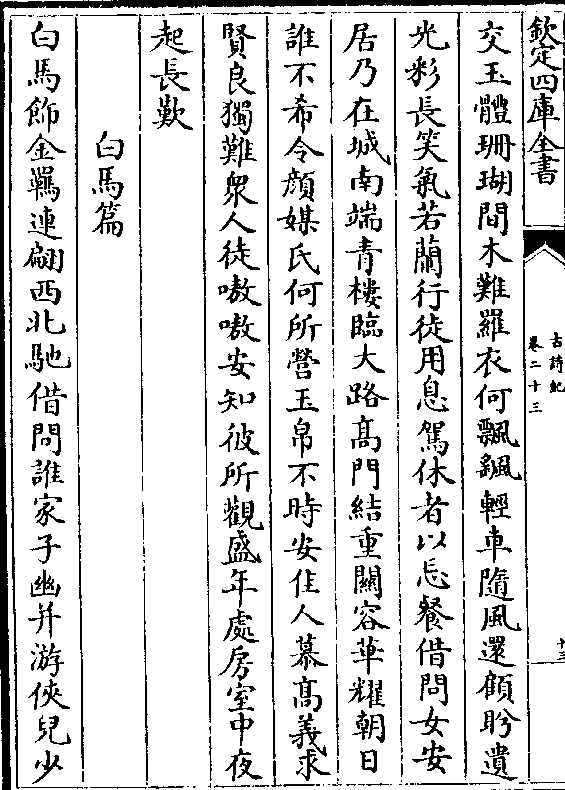 欽定四庫全書
古詩紀
卷二十三
十三
交玉體珊瑚間木難羅衣何飄颻輕車隨風還顧眄遺
光彩長笑氣若蘭行徒用息駕休者以忘餐借問女安
居乃在城南端青樓臨大路髙門結重關容華耀朝日
誰不希令顔媒氏何所營玉帛不時安佳人慕髙義求
賢良獨難衆人徒嗷嗷安知彼所觀盛年處房室中夜
起長歎
白馬篇
白馬飾金羈連翩西北馳借問誰家子幽并游俠兒少